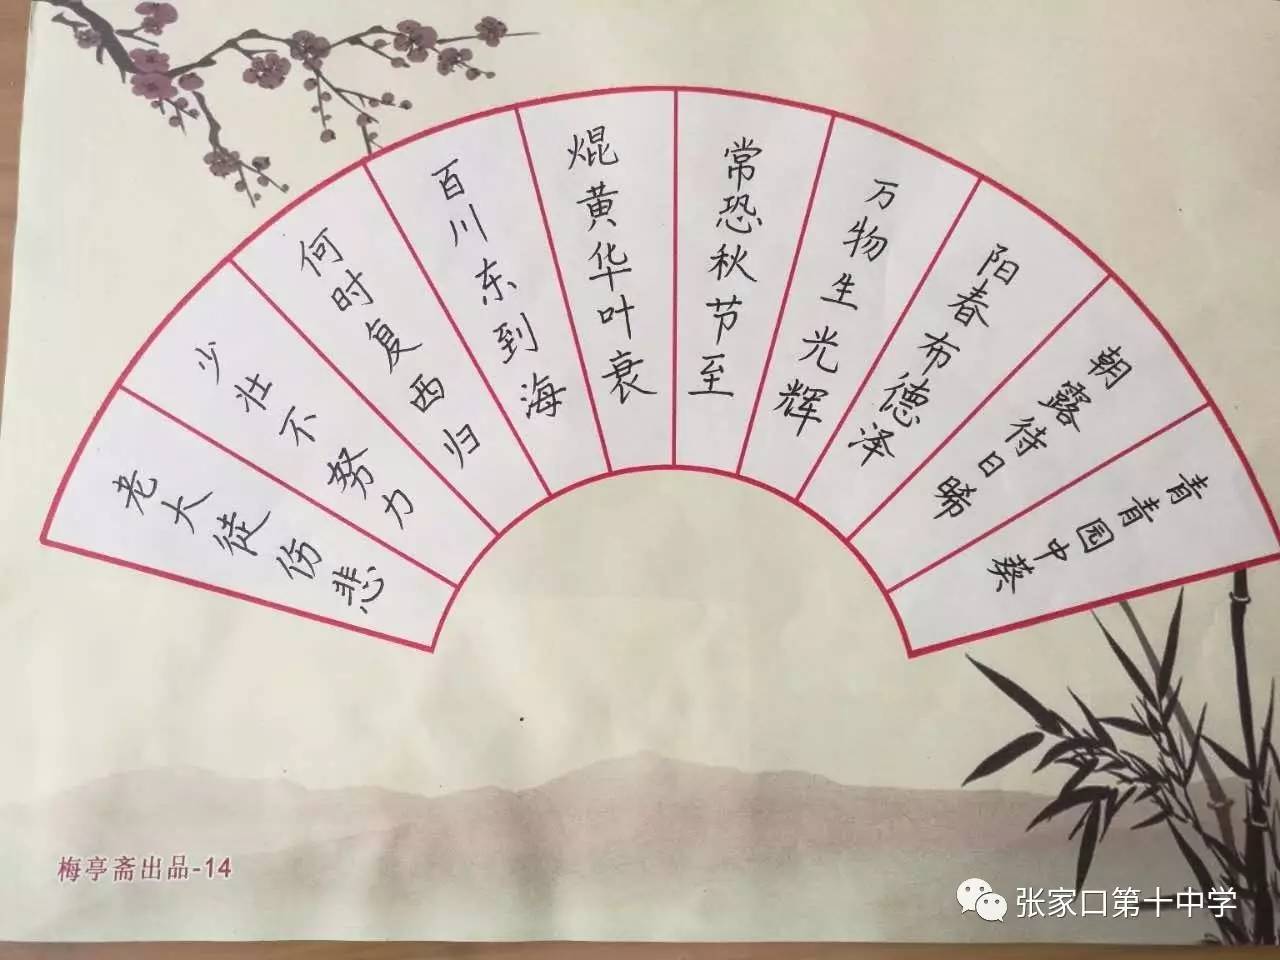 青青园中葵
朝露待日晞
阳春布德泽
万物生光辉
常恐秋节至
焜黄华叶衰
百川东到海
何时复西归
少壮不努力
老大徒伤悲
梅亭斋出品-14
张家口第十中学